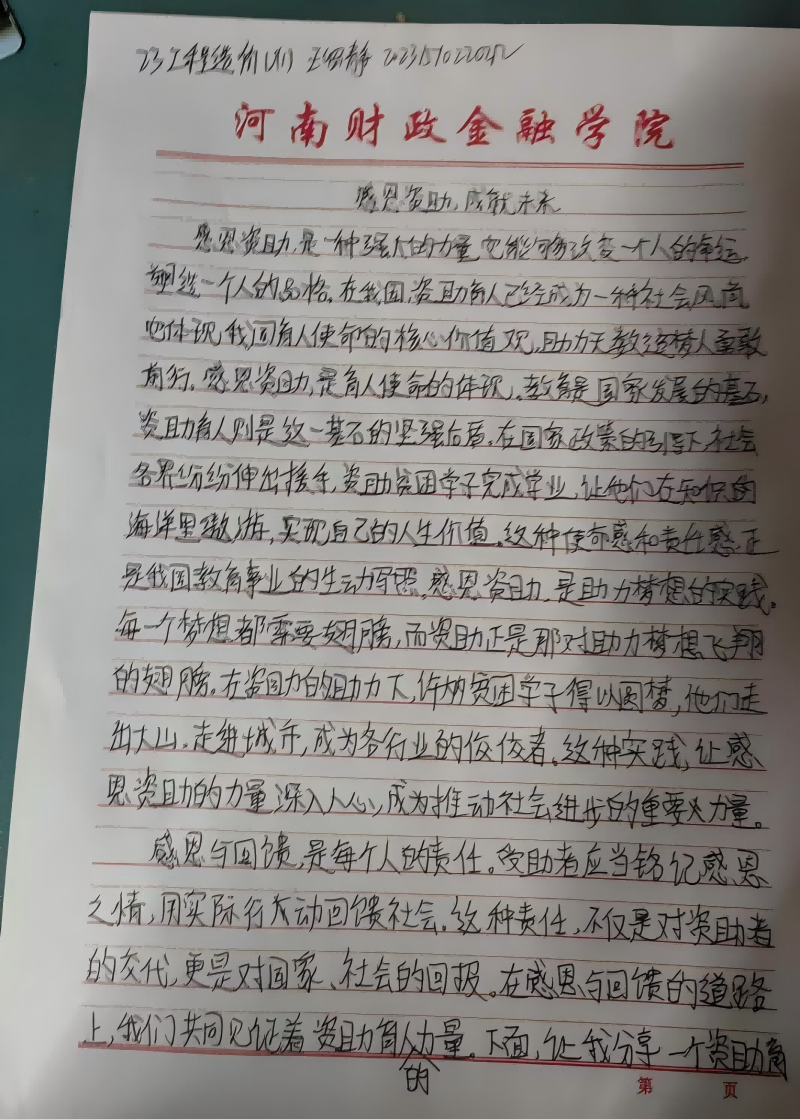 23工程造价(升) 王 静
河南财政金融学院
感恩资助,成就未来
感恩资助,是一种强大的力量,它能够改变一个人的命运,
塑造一个人的品格。在我国,资助育人已经成为一种社会风尚
它体现我国育人使命的核心价值观,助力无数追梦人重敢
前行。感恩资助,是育人使命的体现。教育是国家发展的基石,
资助育人则是这一基石的坚强后盾。在国家政策的引导下,社会
各界纷纷伸出援手,资助贫困学子完成学业,让他们在知识的
海洋里遨游,实现自己的人生价值。这种使命感和责任感,正
是我国教育事业的生动写照。感恩资助,是助力梦想的实践。
每一个梦想都需要翅膀,而资助正是那对助力梦想飞翔
的翅膀。在资助的助力下,许多贫困学子得以圆梦,他们走
出大山,走进城市,成为各行业的佼佼者。这种实践,让感
恩资助的力量深入人心,成为推动社会进步的重要力量。
感恩与回馈,是每个人的责任。受助者应当铭记感恩
之情,用实际行动回馈社会。这种责任,不仅是对资助者
的交代,更是对国家、社会的回报。在感恩与回馈的道路
上,我们共同见证着资助育人的力量。下面,让我分享一个资助育
第 页